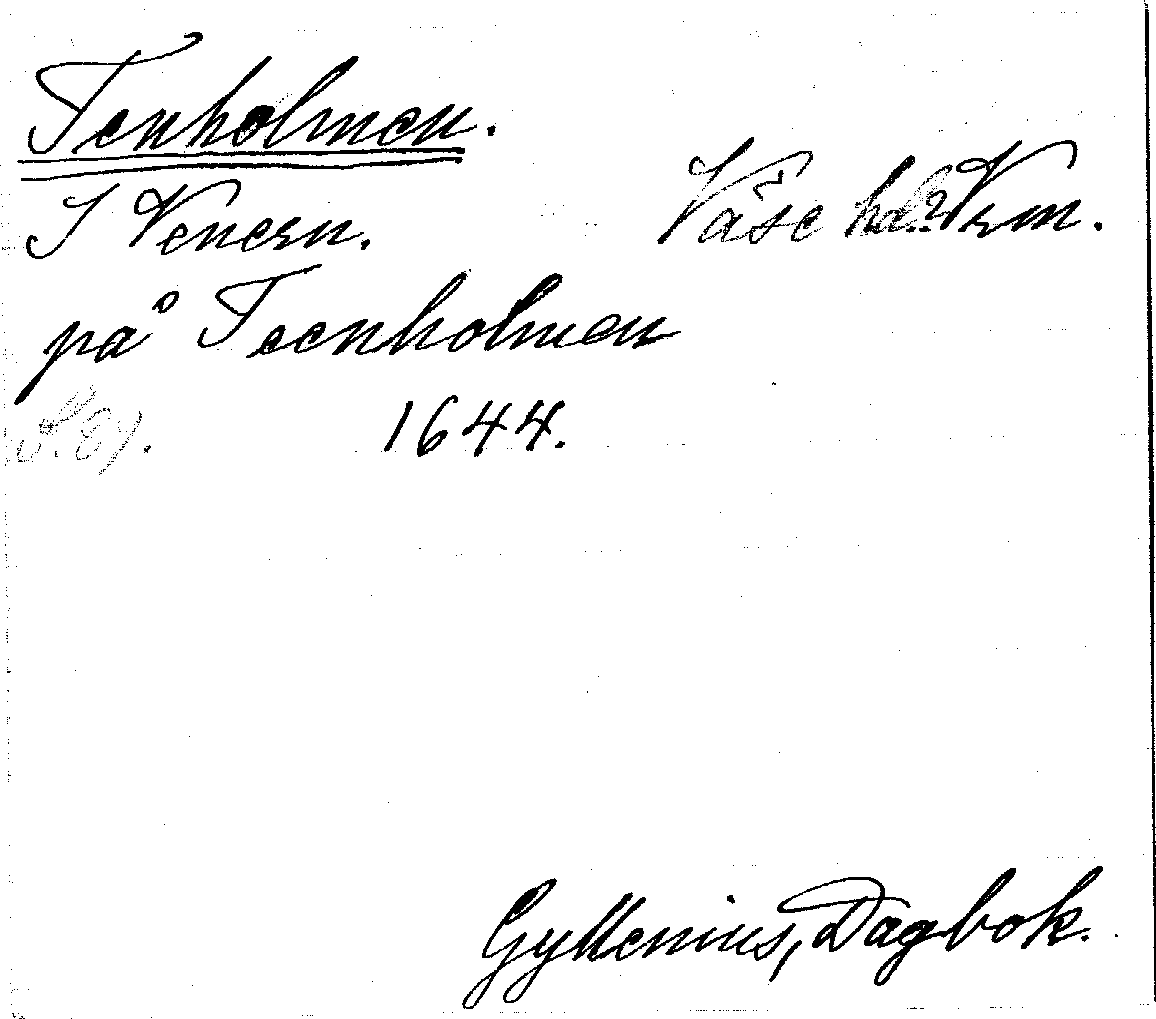 Tenholmen.
I Venern. Väse hd? Vrm.
på Teenholmen
S. 87. 1644.
Gyllenius, Dagbok.